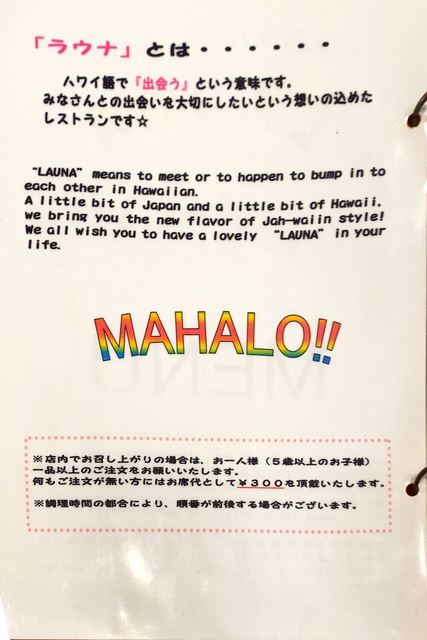 「ラウナ」とは・・・・・・
ハワイ語で『出会う』という意味です。
みなさんとの出会いを大切にしたいという想いの込めた
レストランです☆
“LAUNA” means to meet or to happen to bump in to
each other in Hawaiian.
A little bit of Japan and a little bit of Hawaii.
we bring you the new flavor of Jah-waiin style!
We all wish you to have a lovely “LAUNA” in your
life.
MAHALO!!
※店内でお召し上がりの場合は、お一人様（5歳以上のお子様）
一品以上のご注文をお願いいたします。
何もご注文が無い方にはお席代として¥300を頂戴いたします。
※調理時間の都合により、順番が前後する場合がございます。